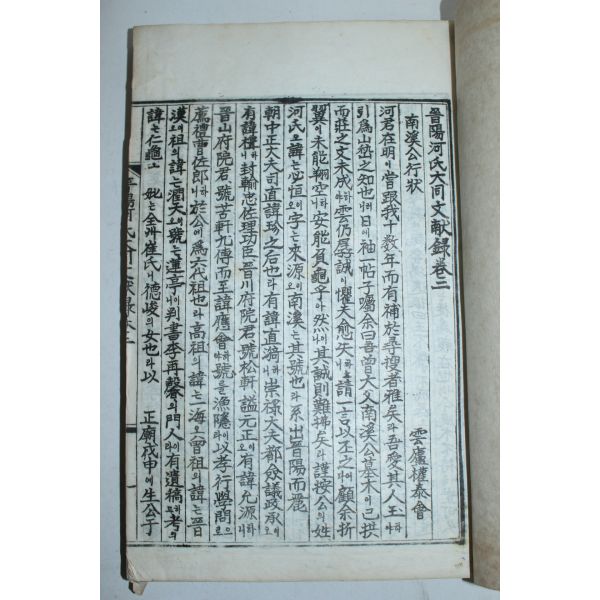 晉陽河氏大同文献錄卷二
南溪公行狀
雲廬權泰會
河君在明이嘗跟我十数年而有補於尋搜者雅矣라吾愛其人玉하야
引爲山㘽之知也러니日에袖一帖子囑余曰吾曾大父南溪公墓木이已拱
而莊之文未成하야雲仍辱誠이懼夫愈失하니請一言以丕之하라顧余折
翼이未能翔空이니安能負龜乎아然이나其誠則難拂矣라謹按公의姓
河氏오諱는必恒이오字는來源이오南溪는其號也라系出晉陽而麗
朝中正大夫司直諱珍之后也라有諱直漪하니崇禄大夫都僉議政承이오
有諱樓하니封輸忠佐理功臣晉川府院君號松軒謚元正이오有諱允源하니
晉山府院君號苦軒九傳而至諱應會하야號를漁隱이라以孝行學問으로
薦禮曹佐郞하니於公에爲六代祖也라高祖의諱는一海오曾祖의諱는晋
漢이오祖의諱는潤天이오號는蓮亭이니判書李再馨의門人이라有遺稿하고考의
諱는仁龜오妣는全州崔氏니德峻의女也라以正廟戊申에生公于